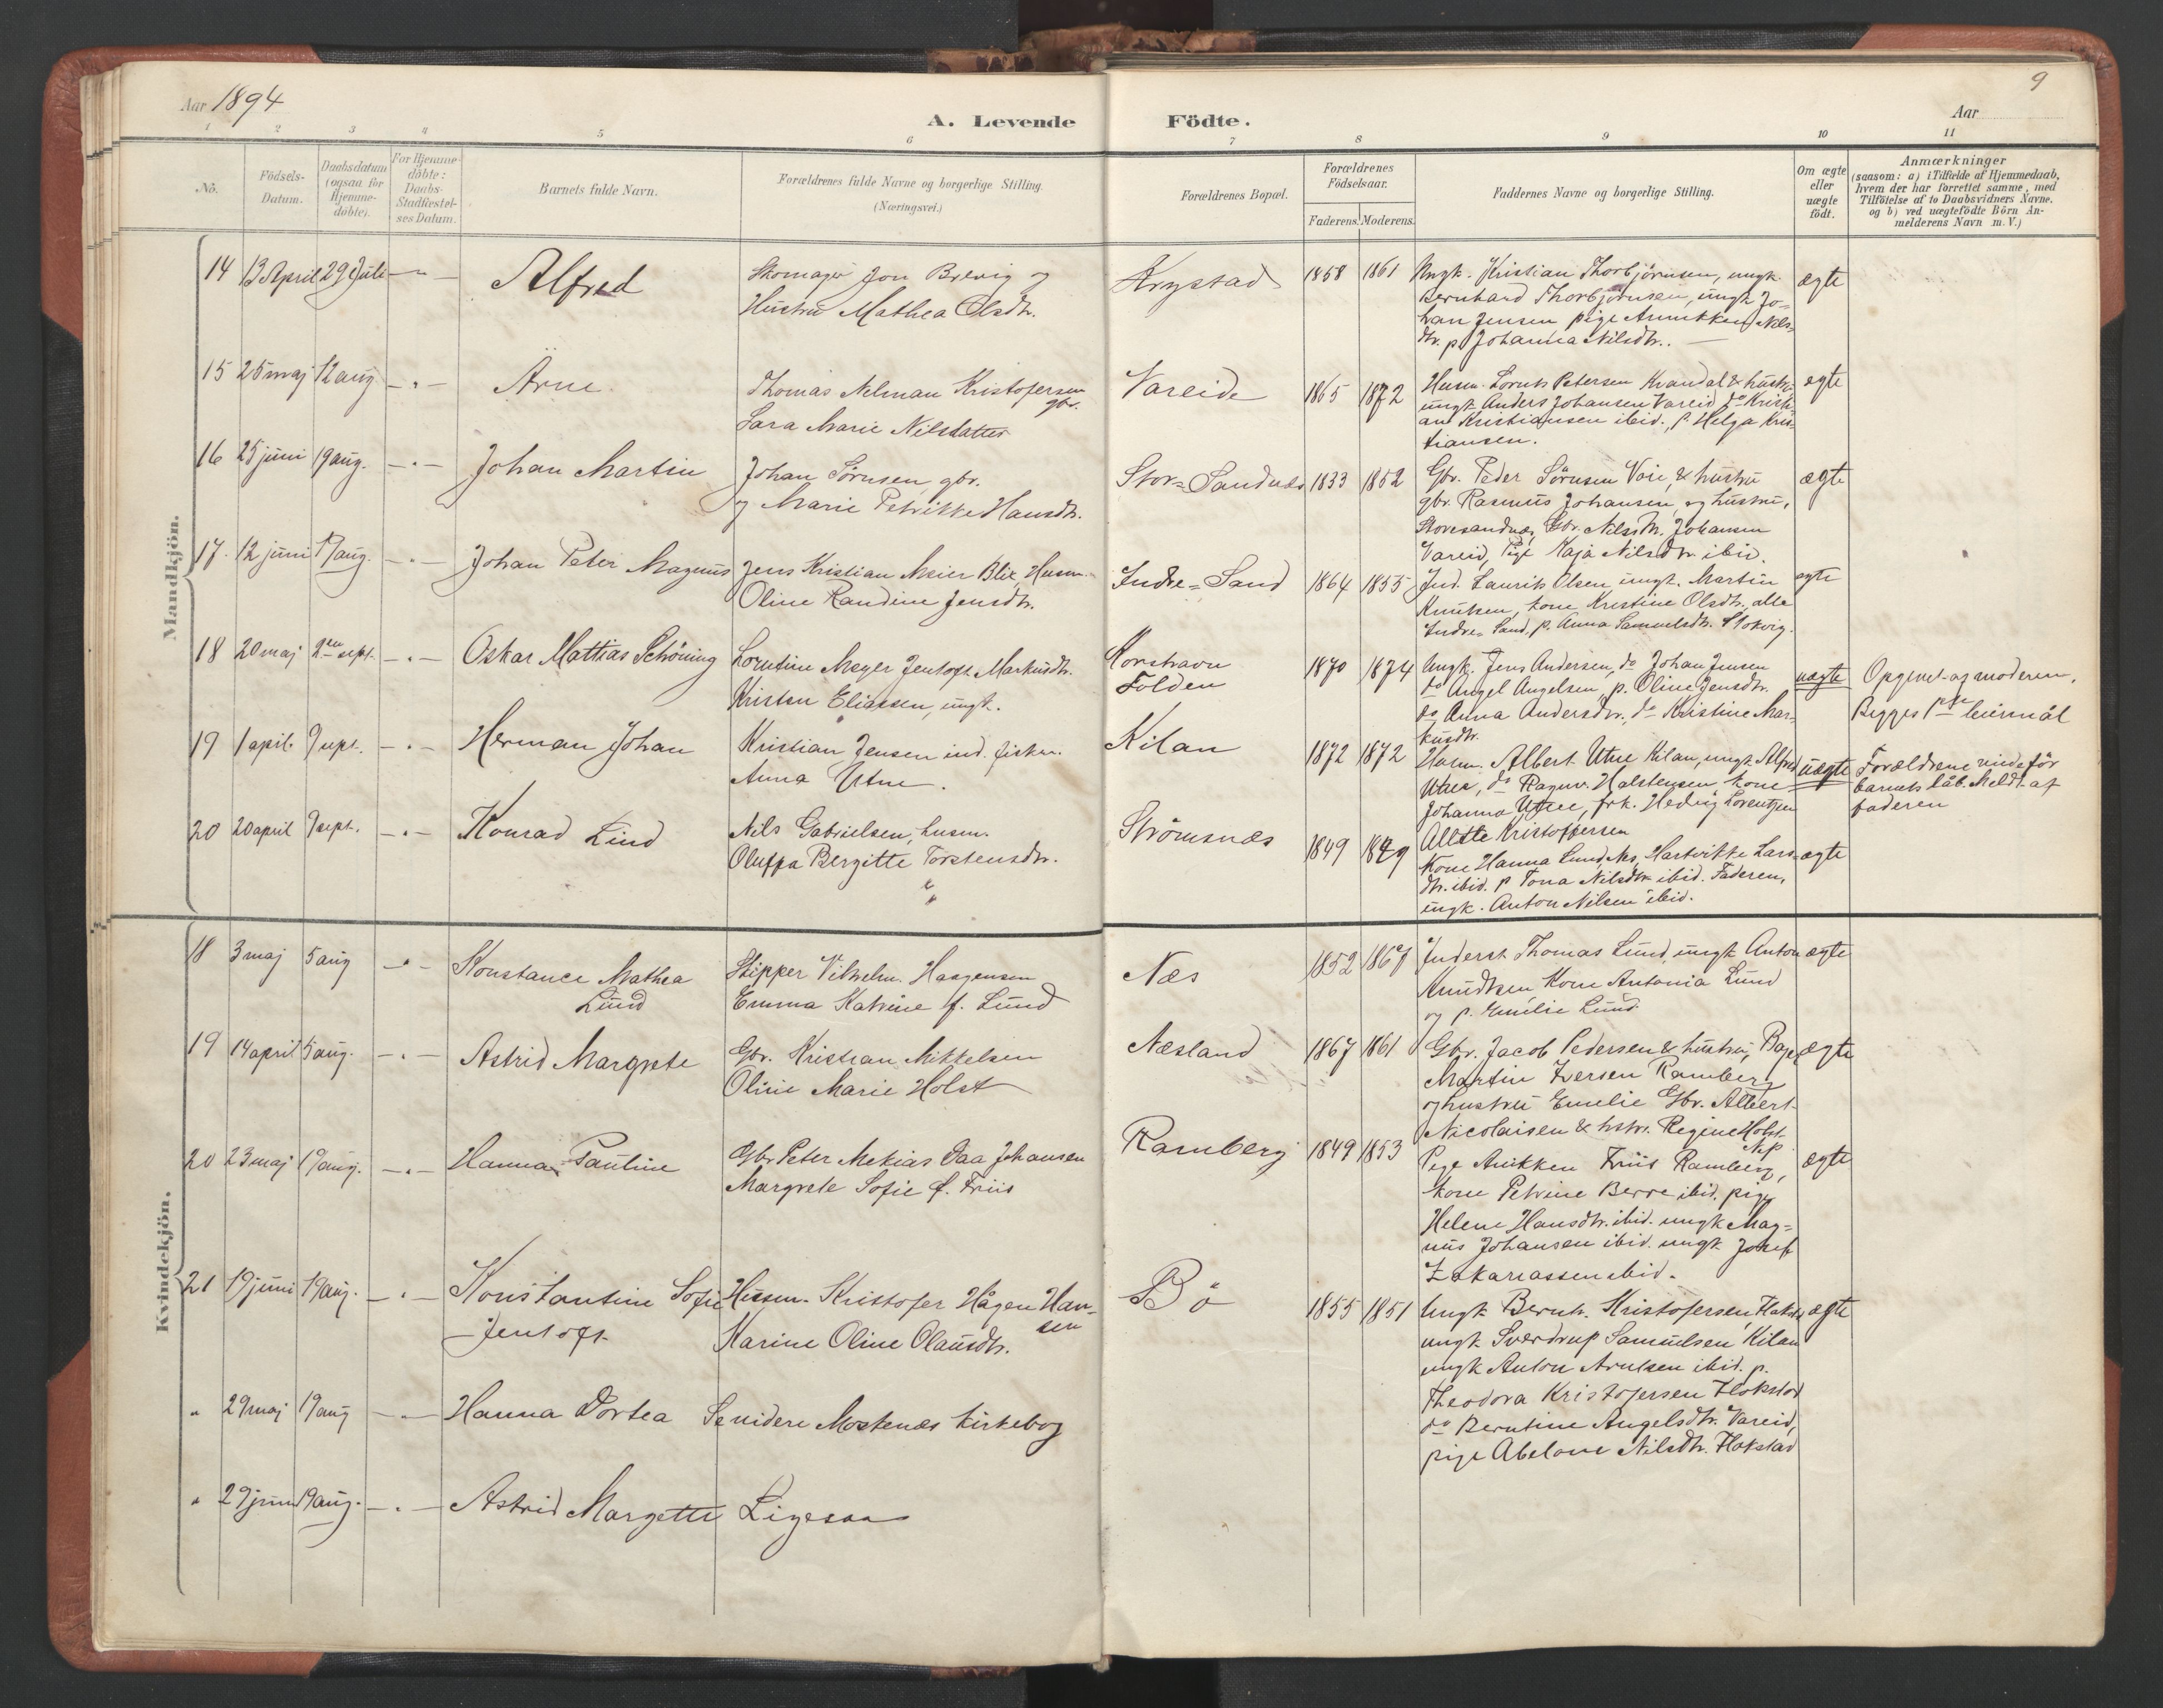 Aar 1894
A. Levende Födte.
9
Aar
1 2 3 4 5 6 7 8 9 10 11
No.
Födsels-
Datum.
Daabsdatum
(ogsaa for
Hjemme-
döbte).
For Hjemme-
döbte:
Daabs-
Stadfæstel-
ses Datum.
Barnets fulde Navn.
Forældrenes fulde Navne og borgerlige Stilling.
(Næringsvei.)
Forældrenes Bopæl.
Forældrenes
Födselsaar.
Faderens. Moderens.
Faddernes Navne og borgerlige Stilling.
Om ægte
eller
uægte
födt.
Anmærkninger
(saasom: a) i Tilfælde af Hjemmedaab,
hvem der har forrettet samme, med
Tilföielse af to Daabsvidners Navne.
og b) ved uægtefödte Börn An-
melderens Navn m. V.)
Mandkjön.
14 13 April 29 Juli Alfred
Skomager Jon Brevig og
Hustru Mathea Olsdtr.
Krystad 1858 1861
Ungk. Kristian Thorbjörnsen, ungk.
Bernhard Thorbjörnsen, ungk Jo-
han Jensen pige Annikken Nils-
dtr. p. Johanna Nilsdtr. —
ægte
15 25 maj 12 aug. — " — Arne
Thomas Nilman Kristofersen
gbr.
Sara Marie Nilsdatter
Vareide 1865 1872
Husm. Lornts Petersen Kvandal & hustru
ungk. Anders Johansen Vareid, do Kristi-
an Kristiansen ibid., p. Helga Kris-
tiansen.
ægte
16 25 juni 19 aug. — " — Johan Martin
Johan Sörnsen, gbr.
og Marie Petrikke Hansdtr.
Stor-Sandnes 1833 1852
Gbr. Peder Sörnsen Voie, & hustru
gbr. Rasmus Johansen, og hustru,
Storesandnæs, Gbr. Nils M. Johansen
Vareid, Pige Kaja Nilsdtr. ibid.
ægte
17. 12 juni 19 aug. — " — Johan Peter Magnus
Jens Kristian Meier Blix, Husm.
Oline Randine Jensdtr.
Indre-Sand 1864 1855
Ind. Laurits Olsen ungk. Martin
Knutsen, kone Kristine Olsdtr., alle
Indre-Sand, p. Anna Samuelsdtr. Stokvig.
ægte
18 20 maj 2en sept. — " — Oskar Mattias Schöning
Lorntine Meyer Jentoft Markusdtr.
Kristen Eliassen, ungk.
Korshavn
Folden
1870 1874
Ungk. Jens Andersen, do Johan Jensen
do Angel Angelsen, p. Oline Jensdtr.
do Anna Andersdtr., do Kristine Mar-
kusdtr.
uægte
Opgivet af moderen.
Begges 1ste leiermål
19 1 april 9 sept. — " — Herman Johan
Kristian Jensen ind. fisker.
Anna Utne.
Kilan 1872 1872
Husm. Albert Utne Kilan, ungk. Alfred
Utne, do Ragnv. Halstensen, kone
Johanna Utne, frk. Hedvig Lorentzen
uægte
Forældrene viede för
barnets dåb. Meldt af
faderen
20 20 april 9 sept. — " — Konrad Lind
Nils Gabrielsen, husm.
Oluffa Bergitte Torstensdtr.
Strömsnæs 1849 1849
Kristoffersen
Kone Hanna Lund, Næs, Hartvikke Lars-
dtr. ibid. p Tona Nilsdtr. ibid. Faderen,
ungk. Anton Nilsen ibid.
ægte
Kvindekjön.
18 3 maj 5 aug — " — Konstance Mathea
Lund
Skipper Vilhelm Haagensen
Emma Katrine f. Lund
Næs 1852 1867
Inderst. Thomas Lund, ungk. Anton
Knudtsen, Kone Antonia Lund
og p. Emilie Lund.
ægte
19 14 april 5 aug. — " — Astrid Margrete
Gbr. Kristian Mikkelsen
Oline Marie Holst
Næsland 1867 1861
Gbr. Jacob Pedersen & hustru, Bager
Martin Iversen Ramberg
og hustru Emelie Gbr. Albert
Nicolaisen & hstr. Regine Holst
ægte
20 23 maj 19 aug. — " — Hanna Pauline
Gbr Peter Mekias Daa Johansen
Margrete Sofie f. Friis
Ramberg 1849 1853
Pige Anikken Friis Ramberg,
kone Petrine Berre ibid. pige
Helene Hansdtr. ibid. ungk Mag-
nus Johansen ibid. ungk. Josef
Zakariassen ibid.
ægte
21 19 juni 19 aug. — " — Konstantine Sofie
Jentoft
Husm. Kristofer Hågen Han-
sen
Karine Oline Olausdtr.
Bö 1855 1851
Ungk. Bernh. Kristofersen, Flakstad
ungk. Sverdrup Samuelsen, Kilan
ungk Anton Arntsen ibid. p.
Theodora Kristofersen Flakstad
do Berntine Angelsdtr. Vareid,
pige Abelone Nilsdtr. Flakstad
ægte
" 29 maj 19 aug — " — Hanna Dortea Se videre Moskenæs kirkebog
" 29 juni 19 aug. — " — Astrid Margette Ligesaa